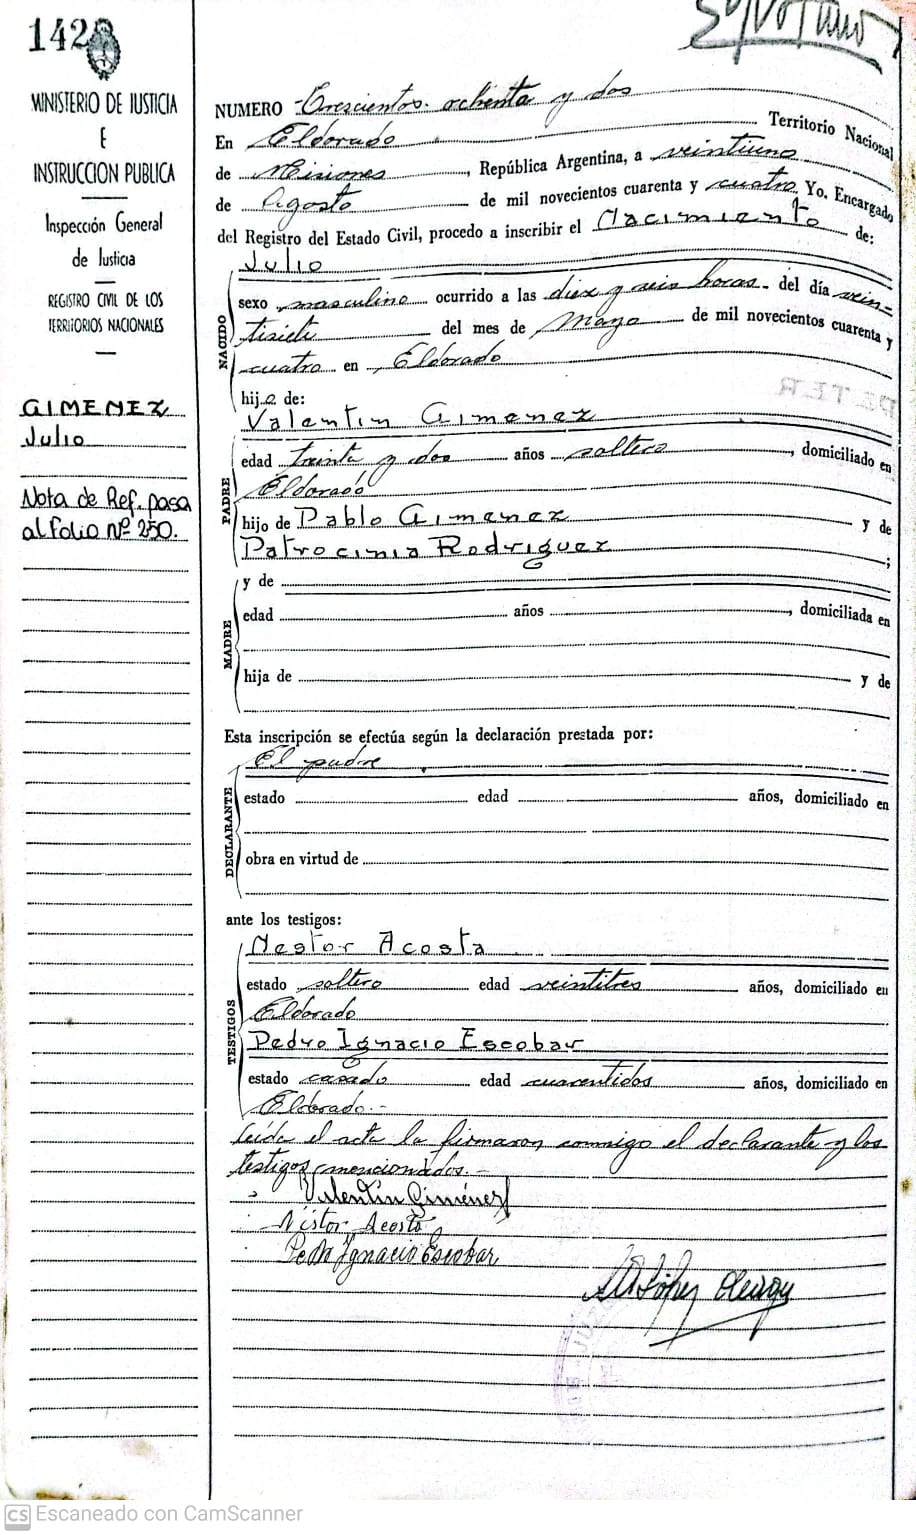 142
MINISTERIO DE JUSTICIA
E
INSTRUCCION PUBLICA
Inspección General
de Justicia
REGISTRO CIVIL DE LOS
TERRITORIOS NACIONALES
GIMENEZ
Julio
Nota de Ref. pasa
al folio Nº 250.
NUMERO Trescientos ochenta y dos
En Eldorado Territorio Nacional
de Misiones, República Argentina, a veintiuno
de Agosto de mil novecientos cuarenta y cuatro Yo, Encargado
del Registro del Estado Civil, procedo a inscribir el Nacimiento de:
NACIDO
Julio
sexo masculino ocurrido a las diez y seis horas del día vein=
tisiete del mes de Mayo de mil novecientos cuarenta y
cuatro en Eldorado
hijo de:
PADRE
Valentin Gimenez
edad treinta y dos años soltero, domiciliado en
Eldorado
hijo de Pablo Gimenez y de
Patrocinia Rodriguez;
MADRE
y de
edad años, domiciliada en
hija de y de
Esta inscripción se efectúa según la declaración prestada por:
DECLARANTE
El padre
estado edad años, domiciliado en
obra en virtud de
ante los testigos:
TESTIGOS
Nestor Acosta
estado soltero edad veintitres años, domiciliado en
Eldorado
Pedro Ignacio Escobar
estado casado edad cuarentidos años, domiciliado en
Eldorado.-
Leída el acta la firmaron conmigo el declarante y los
testigos mencionados.-
Valentín Giménez
Néstor Acosta
Pedro Ignacio Escobar
CS Escaneado con CamScanner